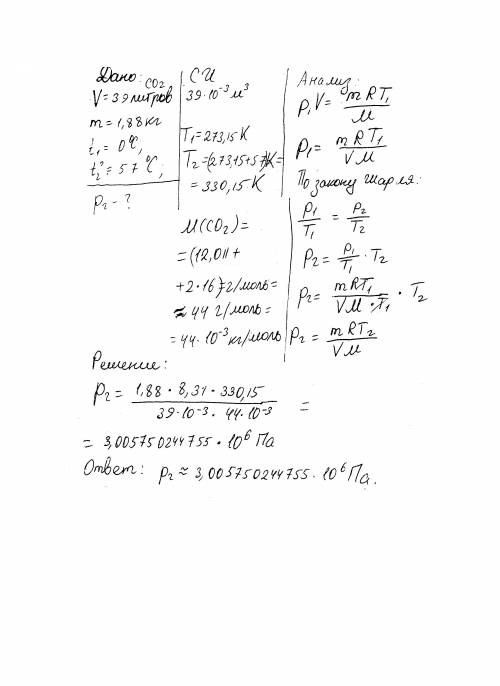 Дано: CO₂
V = 39 литров
m = 1,88 кг
t₁ = 0°C,
t₂ = 57°C,
p₂ - ?
СИ
39·10⁻³ м³
T₁ = 273,15 K
T₂ = (273,15+57)K =
= 330,15 K
M(CO₂) =
= (12,011 +
+2·16) г/моль =
≈ 44 г/моль =
= 44·10⁻³ кг/моль
Анализ:
P₁V = mRT₁/M
P₁ = mRT₁/VM
По закону Шарля:
P₁/T₁ = P₂/T₂
P₂ = P₁/T₁ · T₂
P₂ = mRT₁/VM·T₁ · T₂
P₂ = mRT₂/VM
Решение:
P₂ = 1,88·8,31·330,15/39·10⁻³·44·10⁻³ =
= 3,005750244755·10⁶ Па
Ответ: P₂ ≈ 3,005750244755·10⁶ Па.